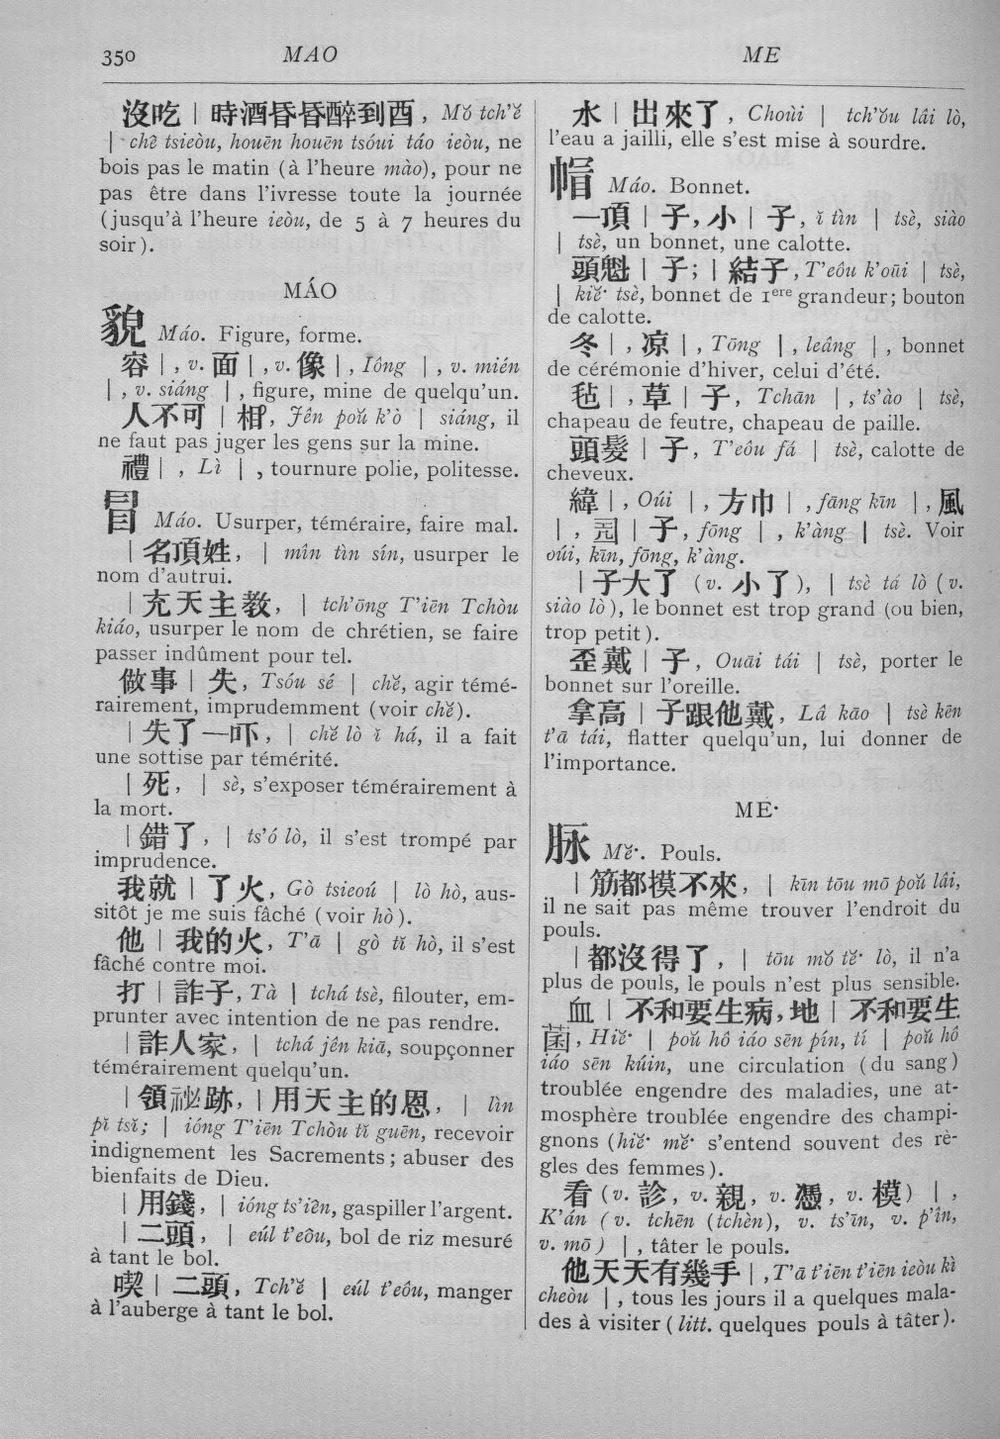 350
MAO
ME
沒吃 | 時酒昏昏醉到酉, Mŏ tch'ĕ
| chê tsieòu, houēn houēn tsóui táo ieòu, ne
bois pas le matin (à l'heure mào), pour ne
pas être dans l'ivresse toute la journée
(jusqu'à l'heure ieòu, de 5 à 7 heures du
soir).
MÁO
貌 Máo. Figure, forme.
容 | , v. 面 | , v. 像 | , Iông | , v. mién
| , v. siáng | , figure, mine de quelqu'un.
人不可 | 相, Jên poŭ k'ò | siáng, il
ne faut pas juger les gens sur la mine.
禮 | , Lì | , tournure polie, politesse.
冒 Máo. Usurper, téméraire, faire mal.
| 名頂姓, | mîn tìn sín, usurper le
nom d'autrui.
| 充天主教, | tch'ōng T'iēn Tchòu
kiáo, usurper le nom de chrétien, se faire
passer indûment pour tel.
做事 | 失, Tsóu sé | chĕ, agir témé-
rairement, imprudemment (voir chĕ).
| 失了一吓, | chĕ lò ĭ há, il a fait
une sottise par témérité.
| 死, | sè, s'exposer témérairement à
la mort.
| 錯了, | ts'ó lò, il s'est trompé par
imprudence.
我就 | 了火, Gò tsieoú | lò hò, aus-
sitôt je me suis fâché (voir hò).
他 | 我的火, T'ā | gò tĭ hò, il s'est
fâché contre moi.
打 | 詐子, Tà | tchá tsè, filouter, em-
prunter avec intention de ne pas rendre.
| 詐人家, | tchá jên kiā, soupçonner
témérairement quelqu'un.
| 領祕跡, | 用天主的恩, | lìn
pĭ tsĭ; | ióng T'iēn Tchòu tĭ guēn, recevoir
indignement les Sacrements; abuser des
bienfaits de Dieu.
| 用錢, | ióng ts'iên, gaspiller l'argent.
| 二頭, | eúl t'eôu, bol de riz mesuré
à tant le bol.
喫 | 二頭, Tch'ĕ | eúl t'eôu, manger
à l'auberge à tant le bol.
水 | 出來了, Choùi | tch'ŏu lâi lò,
l'eau a jailli, elle s'est mise à sourdre.
帽 Máo. Bonnet.
一頂 | 子, 小 | 子, ĭ tìn | tsè, siào
| tsè, un bonnet, une calotte.
頭魁 | 子; | 結子, T'eôu k'oūi | tsè,
| kiĕ· tsè, bonnet de 1ere grandeur; bouton
de calotte.
冬 | , 凉 | , Tōng | , leâng | , bonnet
de cérémonie d'hiver, celui d'été.
毡 | , 草 | 子, Tchān | , ts'ào | tsè,
chapeau de feutre, chapeau de paille.
頭髮 | 子, T'eôu fá | tsè, calotte de
cheveux.
緯 | , Oúi | , 方巾 | , fāng kīn | , 風
| , | 子, fōng | , k'àng | tsè. Voir
oúi, kīn, fōng, k'àng.
| 子大了 (v. 小了), | tsè tá lò (v.
siào lò), le bonnet est trop grand (ou bien,
trop petit).
歪戴 | 子, Ouāi tái | tsè, porter le
bonnet sur l'oreille.
拿高 | 子跟他戴, Lâ kāo | tsè kēn
t'ā tái, flatter quelqu'un, lui donner de
l'importance.
ME·
脉 Mĕ·. Pouls.
| 筋都摸不來, | kīn tōu mō poŭ lâi,
il ne sait pas même trouver l'endroit du
pouls.
| 都沒得了, | tōu mŏ tĕ· lò, il n'a
plus de pouls, le pouls n'est plus sensible.
血 | 不和要生病, 地 | 不和要生
菌, Hiĕ· | poŭ hô iáo sēn pín, tí | poŭ hô
iáo sēn kúin, une circulation (du sang)
troublée engendre des maladies, une at-
mosphère troublée engendre des champi-
gnons (hiĕ· mĕ· s'entend souvent des rè-
gles des femmes).
看 (v. 診, v. 親, v. 憑, v. 模) | ,
K'án (v. tchēn (tchèn), v. ts'īn, v. p'în,
v. mō) | , tâter le pouls.
他天天有幾手 | , T'ā t'iēn t'iēn ieòu kì
cheòu | , tous les jours il a quelques mala-
des à visiter (litt. quelques pouls à tâter).